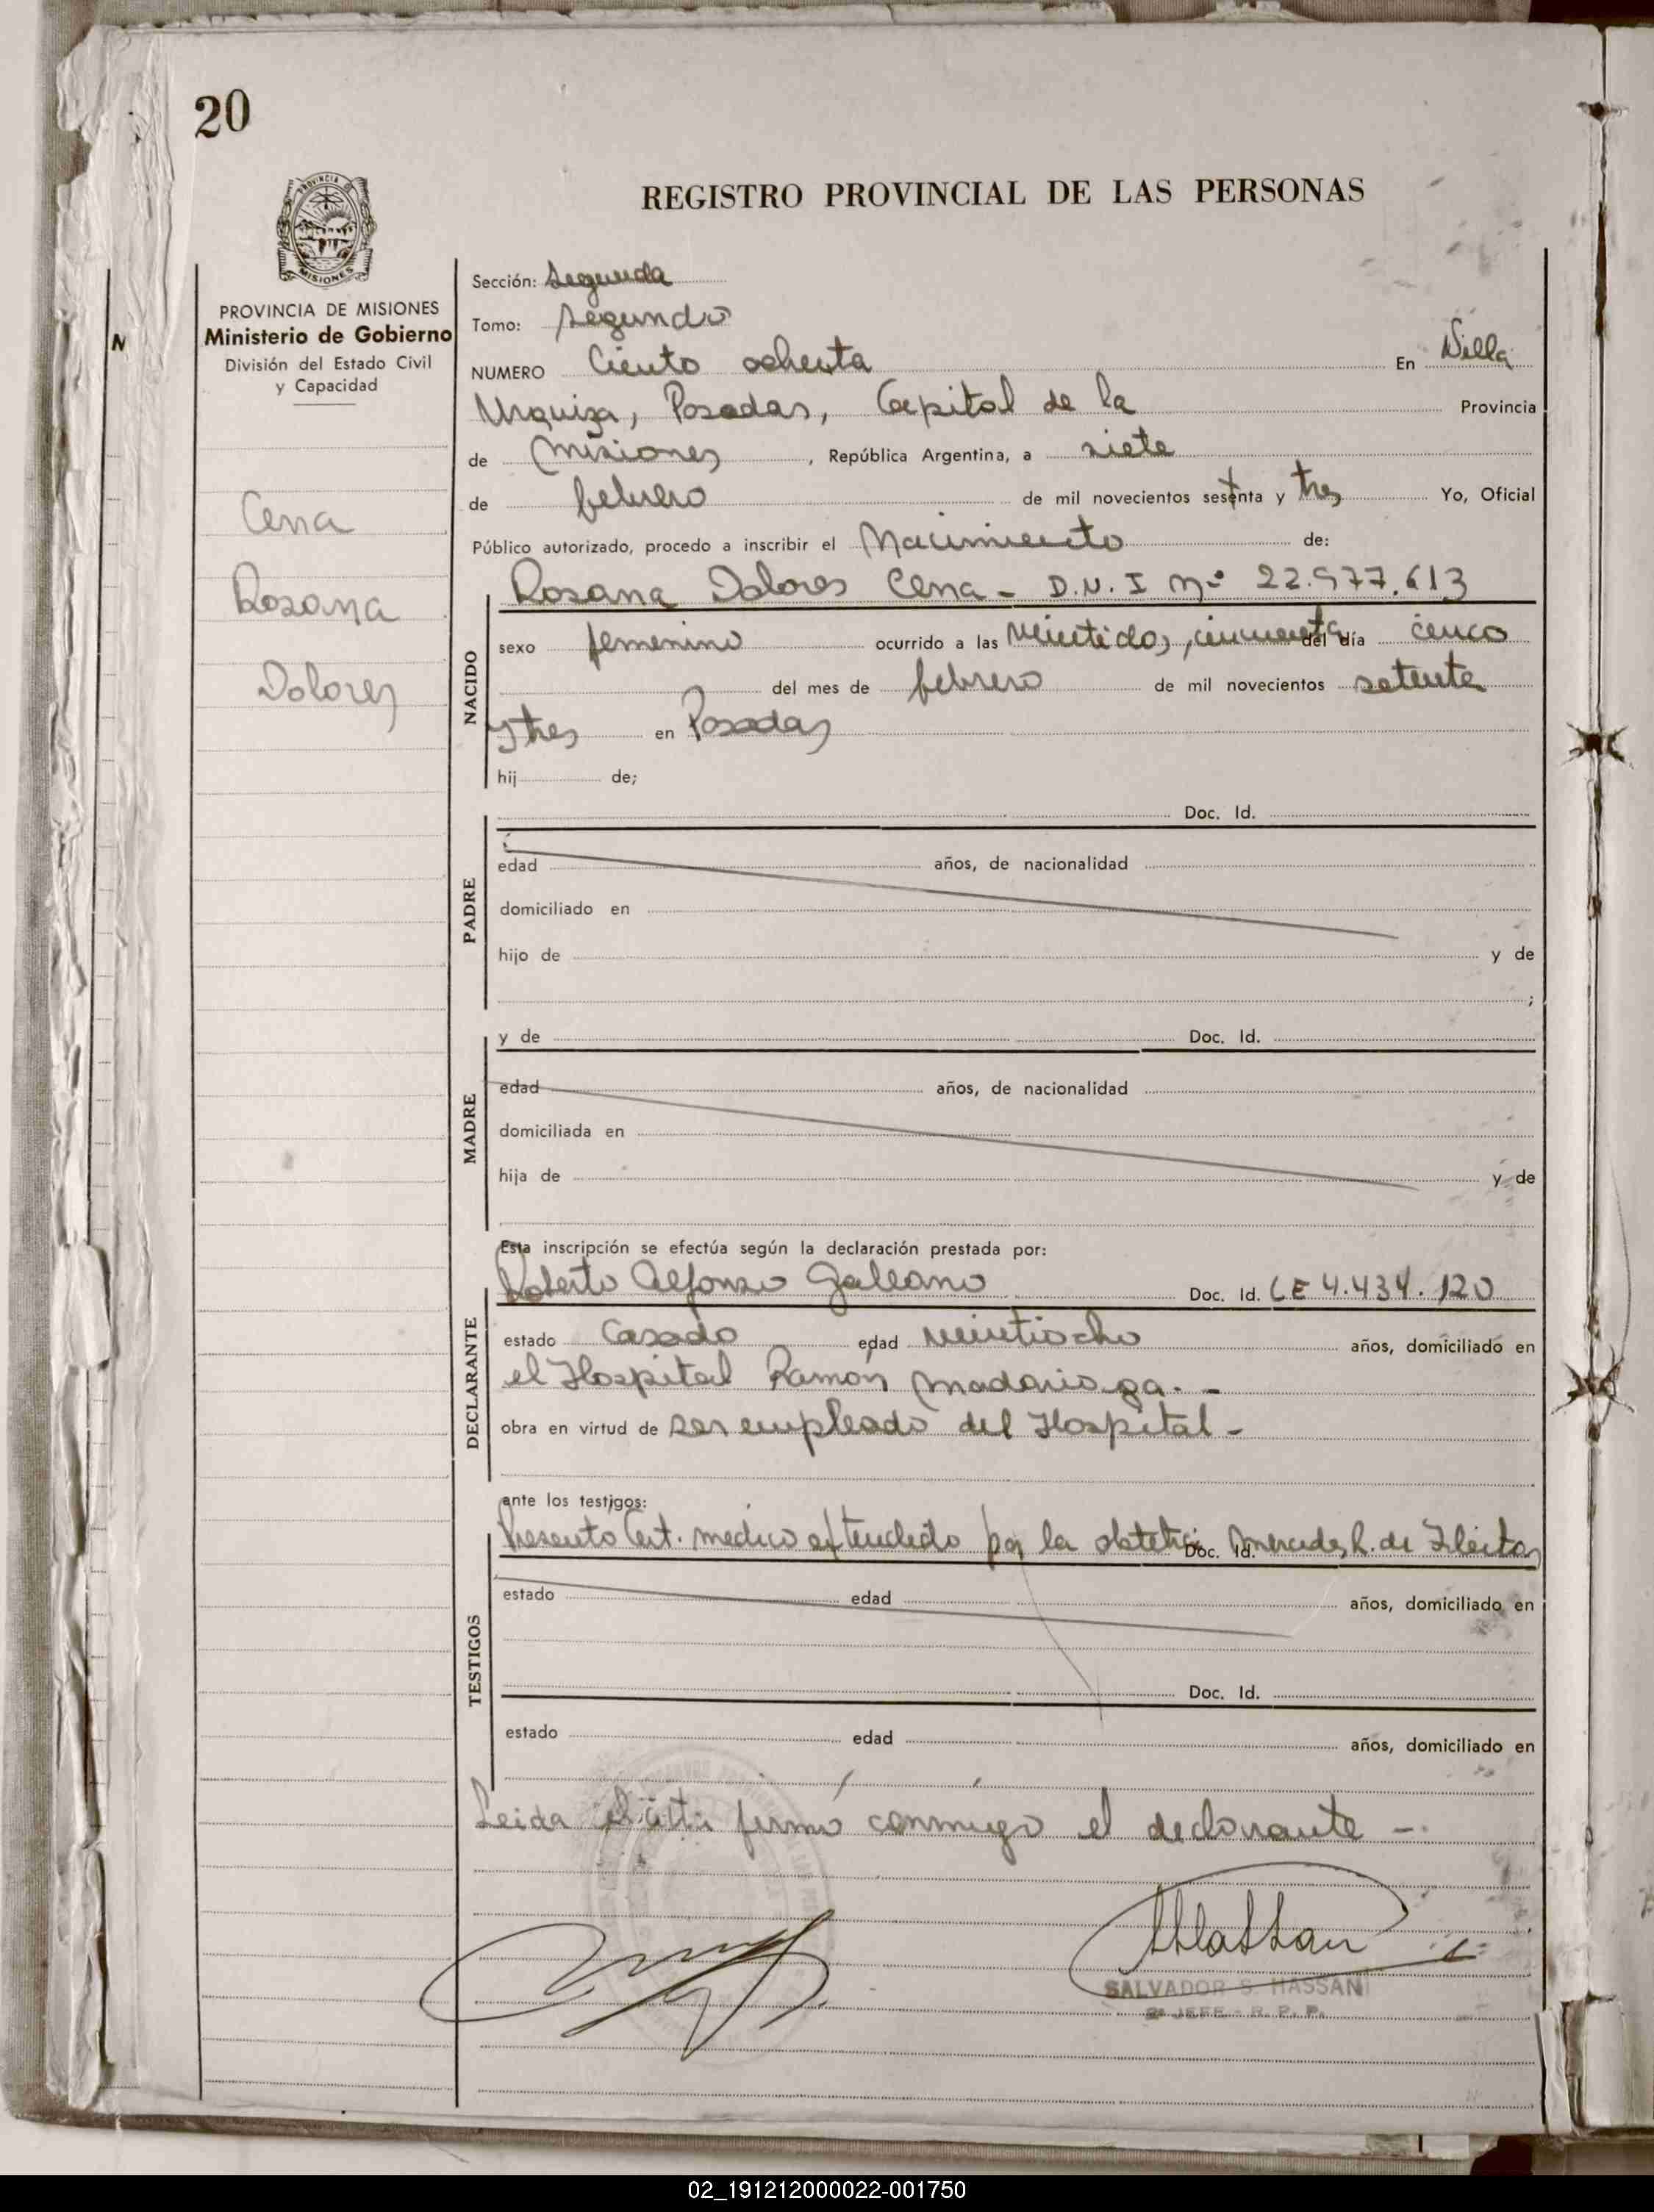 20
REGISTRO PROVINCIAL DE LAS PERSONAS
PROVINCIA DE MISIONES
MISIONES
PROVINCIA DE MISIONES
Ministerio de Gobierno
División del Estado Civil
y Capacidad
N
Cena
Rosana
Dolores
Sección: Segunda
Tomo: Segundo
NUMERO Ciento ochenta En Villa
Urquiza, Posadas, Capital de la Provincia
de Misiones, República Argentina, a siete
de febrero de mil novecientos setenta y tres Yo, Oficial
Público autorizado, procedo a inscribir el Nacimiento de:
Rosana Dolores Cena - D.N.I nº 22.977.613
NACIDO
sexo femenino ocurrido a las veintidos, cincuenta del día cinco
del mes de febrero de mil novecientos setenta
y tres en Posadas
hij de;
Doc. Id.
PADRE
edad años, de nacionalidad
domiciliado en
hijo de y de
;
y de Doc. Id.
MADRE
edad años, de nacionalidad
domiciliada en
hija de y de
Esta inscripción se efectúa según la declaración prestada por:
Roberto Alfonso Galeano Doc. Id. LE 4.434.120
DECLARANTE
estado Casado edad veintiocho años, domiciliado en
el Hospital Ramón Madariaga. -
obra en virtud de ser empleado del Hospital -
ante los testigos:
Presento Cert. medico extendido por la obstetric Doc. Id. Mercedes R. de Fleitas
TESTIGOS
estado edad años, domiciliado en
Doc. Id.
estado edad años, domiciliado en
Leida el acta firmó conmigo el declarante -
SALVADOR S. HASSAN
2º JEFE - R. P. P.
02_191212000022-001750